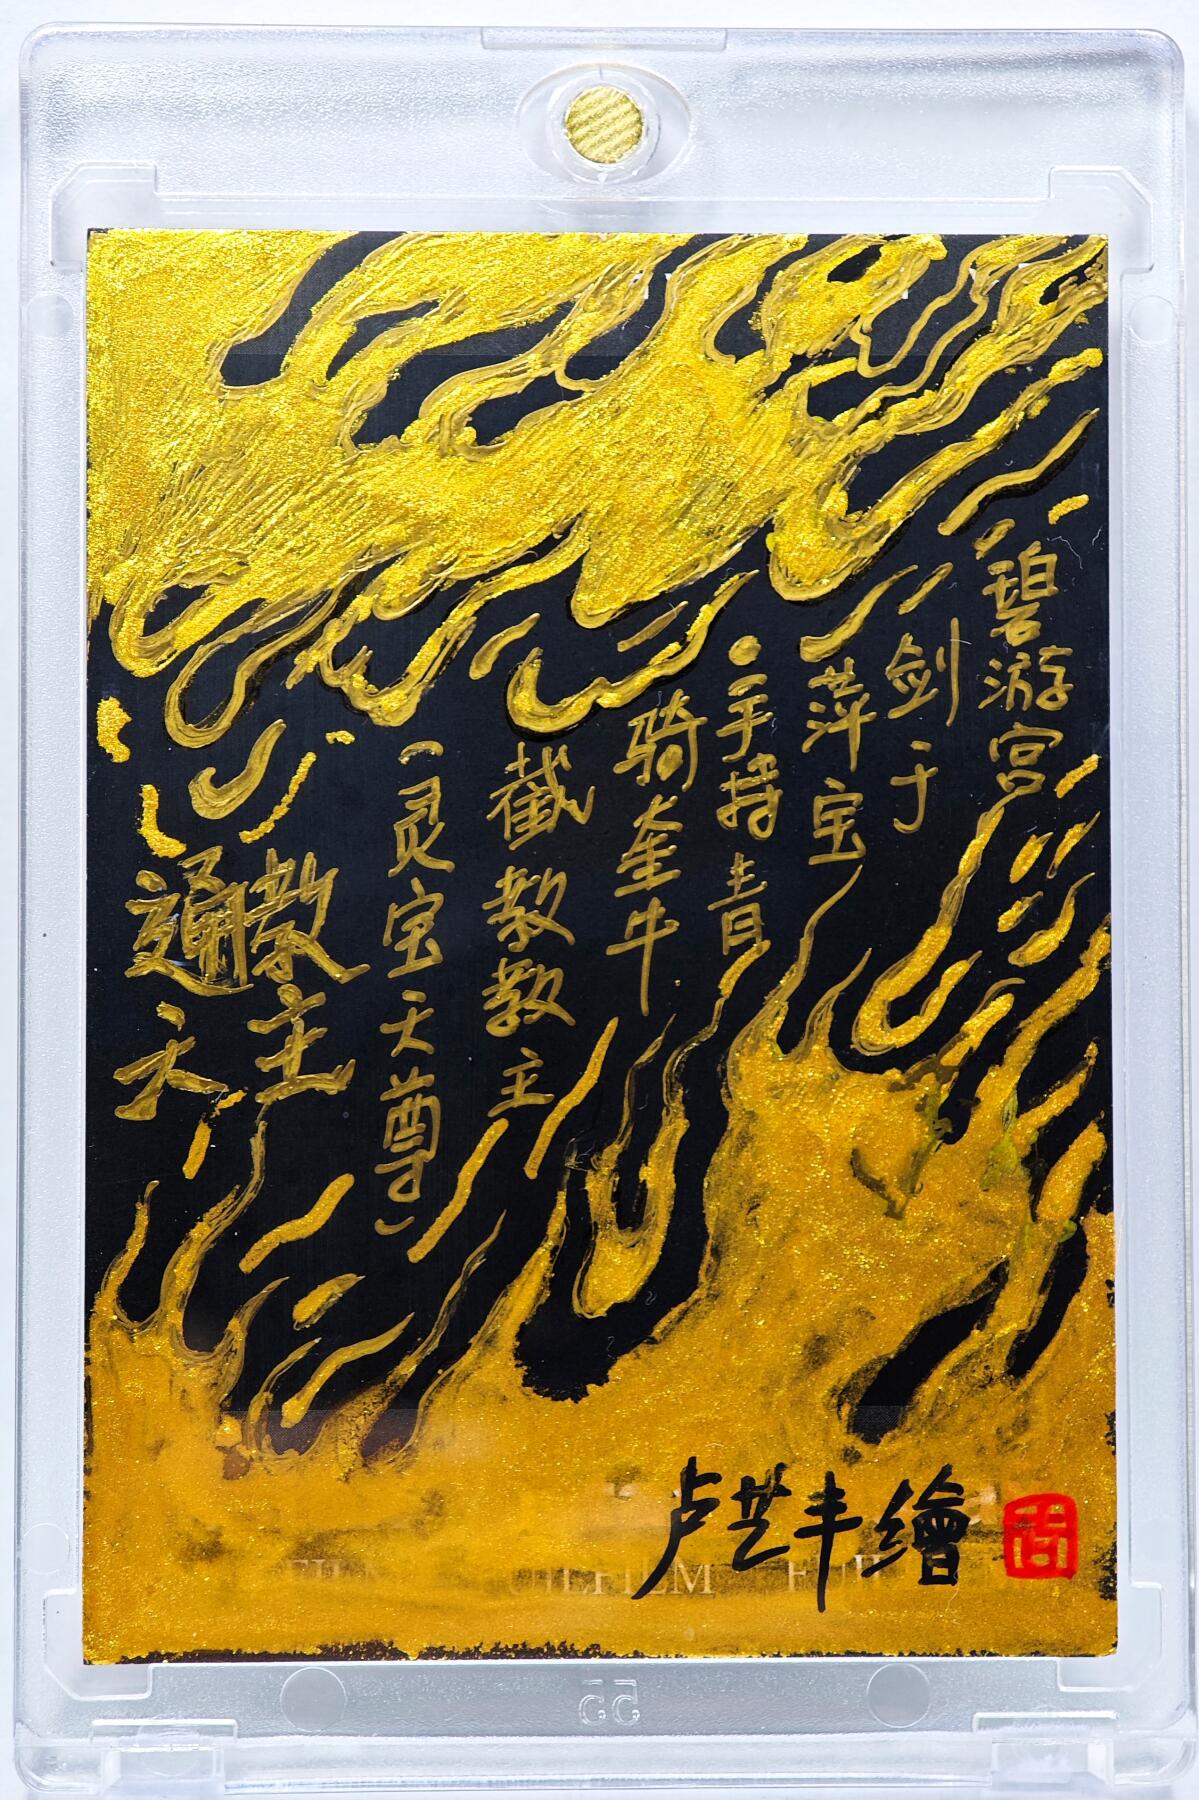 通天
教主
(灵宝天尊)
截教教主
骑奎牛
手持青
萍宝
剑于
碧游宫
卢芸丰繪